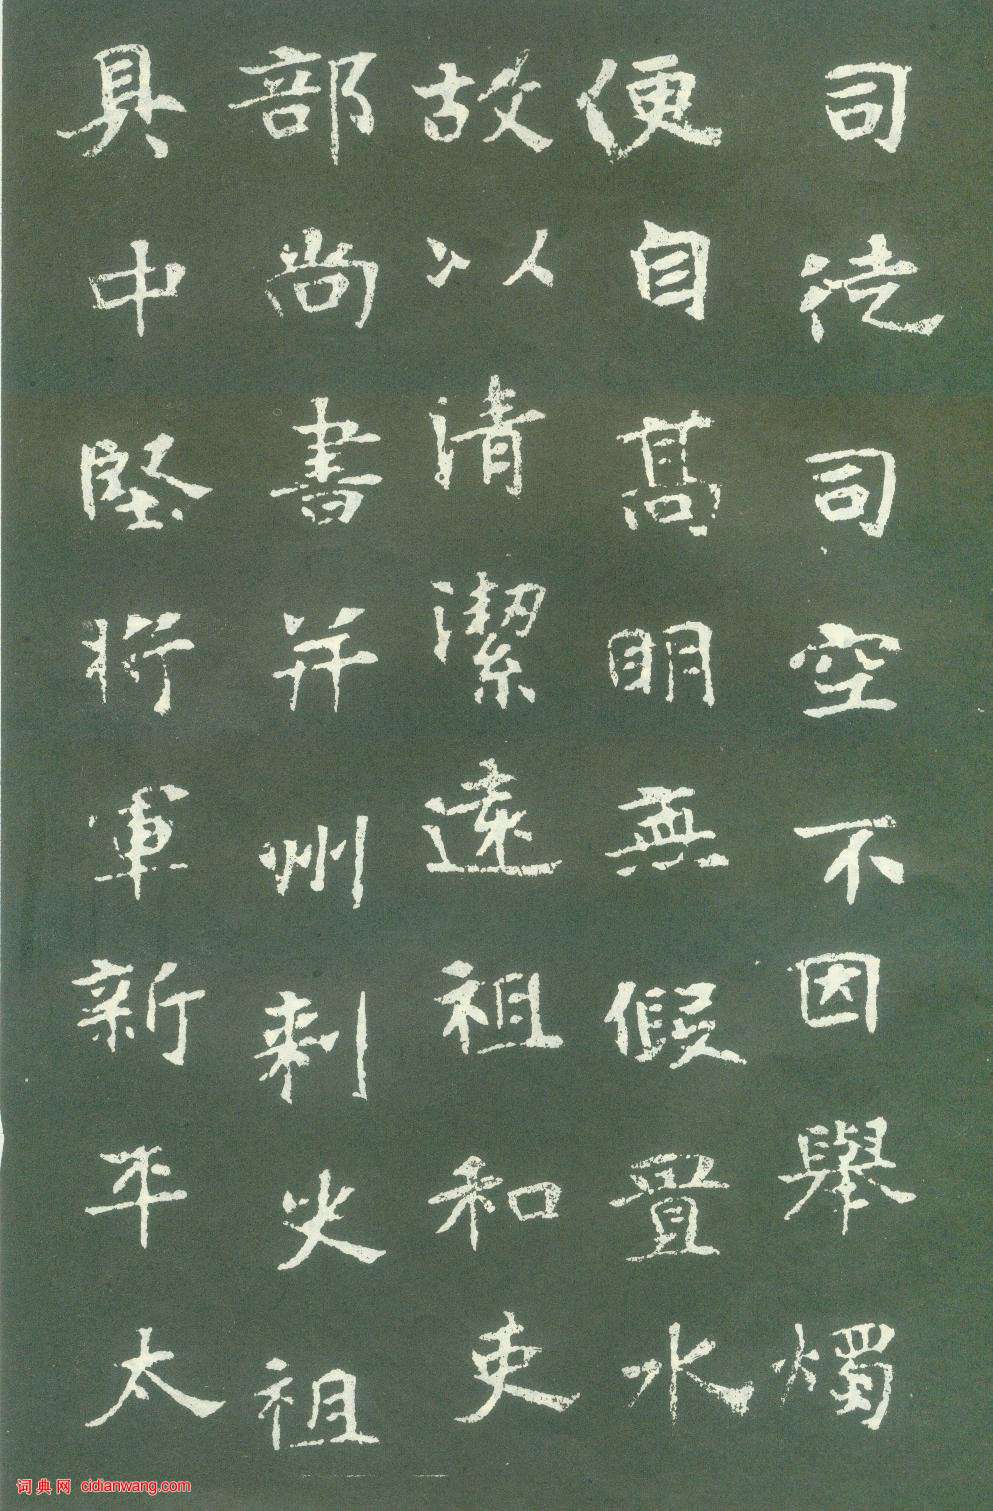 司徒司空不因舉燭
便自高明無假置水
故以清潔遠祖和吏
部尚書并州刺史祖
具中堅將軍新平太
词典网 cidianwang.com